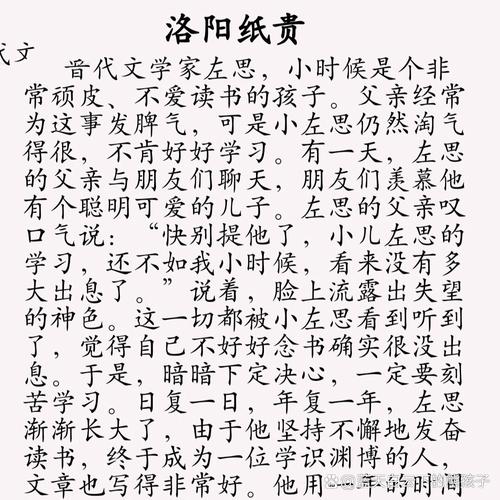 洛阳纸贵
代文
晋代文学家左思，小时候是个非
常顽皮、不爱读书的孩子。父亲经常
为这事发脾气，可是小左思仍然淘气
得很，不肯好好学习。有一天，左思
的父亲与朋友们聊天，朋友们羡慕他
有个聪明可爱的儿子。左思的父亲叹
口气说：“快别提他了，小儿左思的
学习，还不如我小时候，看来没有多
大出息了。”说着，脸上流露出失望
的神色。这一切都被小左思看到听到
了，觉得自己不好好念书确实很没出
息。于是，暗暗下定决心，一定要刻
苦学习。日复一日，年复一年，左思
渐渐长大了，由于他坚持不懈地发奋
读书，终于成为一位学识渊博的人，
文章也写得非常好。他用一年的时间